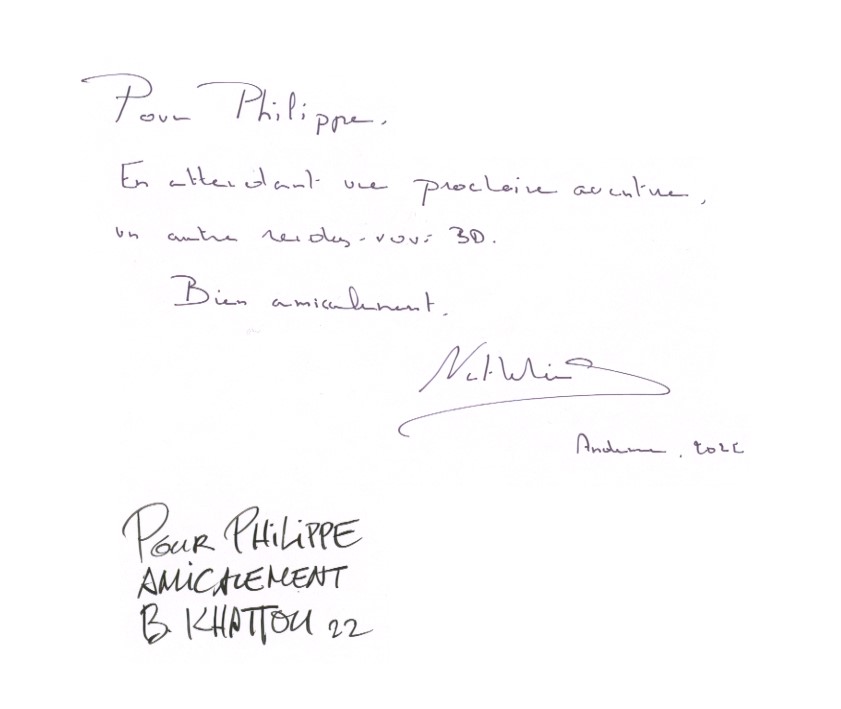 Pour Philippe.
En attendant une prochaine aventure,
un autre rendez-vous BD.
Bien amicalement.
Nathalie
Andenne, 2022
POUR PHILIPPE
AMICALEMENT
B. KHATTOU 22